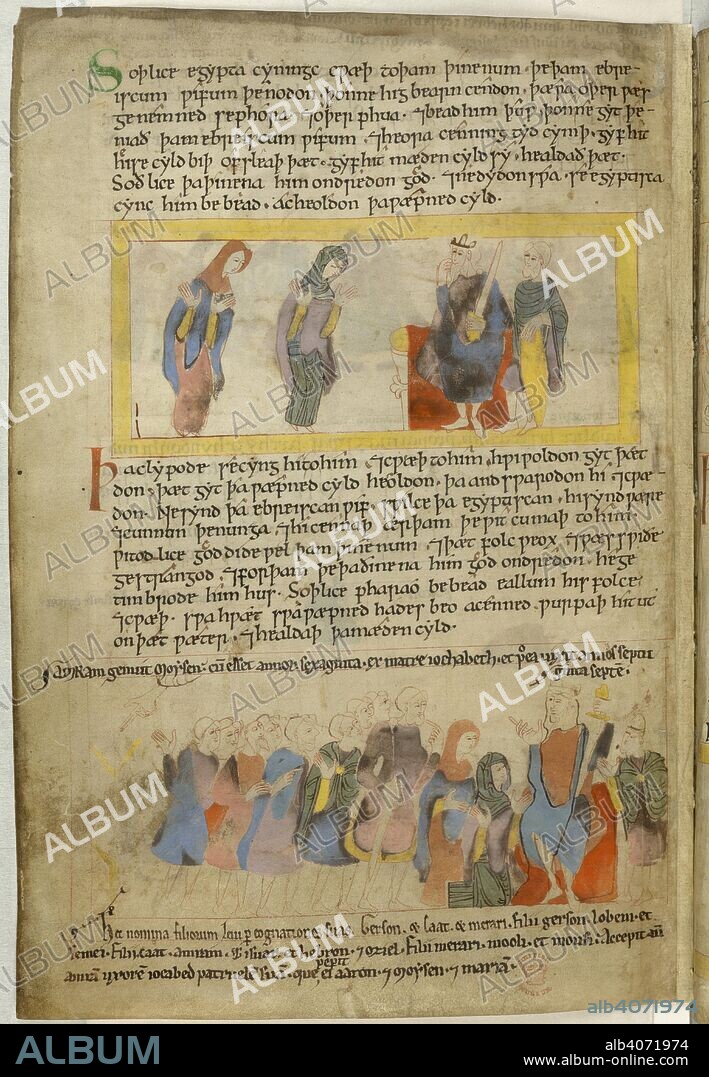 Soþlice egypta cyningc cpæþ toþam þinenum · þe þam ebre-
iscum pifum þenodon þonne hig bearn cendon · þæra oþeri pæs
genemned sephora · ⁊ oþeri phua · ⁊ bead him þus · þonne gyt þe-
niað þam ebreiscum pifum · ⁊ heora cenning tyd cymþ · gyf hit
hyse cyld biþ ofsleaþ þæt · gyf hit mæden cyld sy · healdað þæt ·
Soðlice þa þinena him ondredon god · ⁊ ne dydon spa · se egyptisca
cync him bebead · ac heoldon þa pæpned cyld ·
ha clypode se cyng hi to him · ⁊ cpæþ to him · hpi poldon gyt þæt
don · þæt gyt þa pæpned cyld heoldon · þa andsparodon hi ⁊ cpæ-
don · Ne synd þa ebreiscan pif · spilce þa egyptiscan · hi synd
⁊ cunnun þenunga · ⁊ hi cennaþ ær þam þe pit cumaþ to him ·
pitodlice god dide pel þam þinenum · ⁊ þæt folc peox · ⁊ pæs spide
gestrangod · ⁊ forþam þe þa dinena him god ondredon · he ge
timbrode him hus · Soþlice pharao bebead eallum his folce
⁊ cpæþ · spa hpæt spa pæpned hades beo acenned · purpaþ hit ut
on þæt pæter · ⁊ healdaþ þa mæden cyld ·
AMRAM genuit Moysen · cū esset annor sexaginta · ex matre iochabeth ·
Hec nomina filiorum leui p cognatioēs suas · Gerson · & Caat · & merari · filii gerson · lobeni · et
semei · Filii caat · amram · & isuar · & hebron · & oziel · Filii merari · mooli · et musi · Accepit aū
amrā uxorē iocabed patruelē suā · que pepit ei aaron · ⁊ moysen · ⁊ mariā ·
ALBUM
alb4071974
ALBUM
alb4071974
www.album-online.com